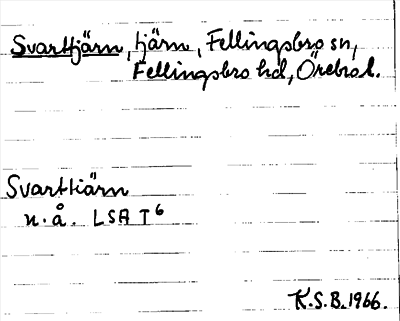 Svarttjärn, tjärn, Fellingsbro sn,
Fellingsbro hd, Örebro l.
Svarttiärn
n.å. LSA T6
K.S.B. 1966.